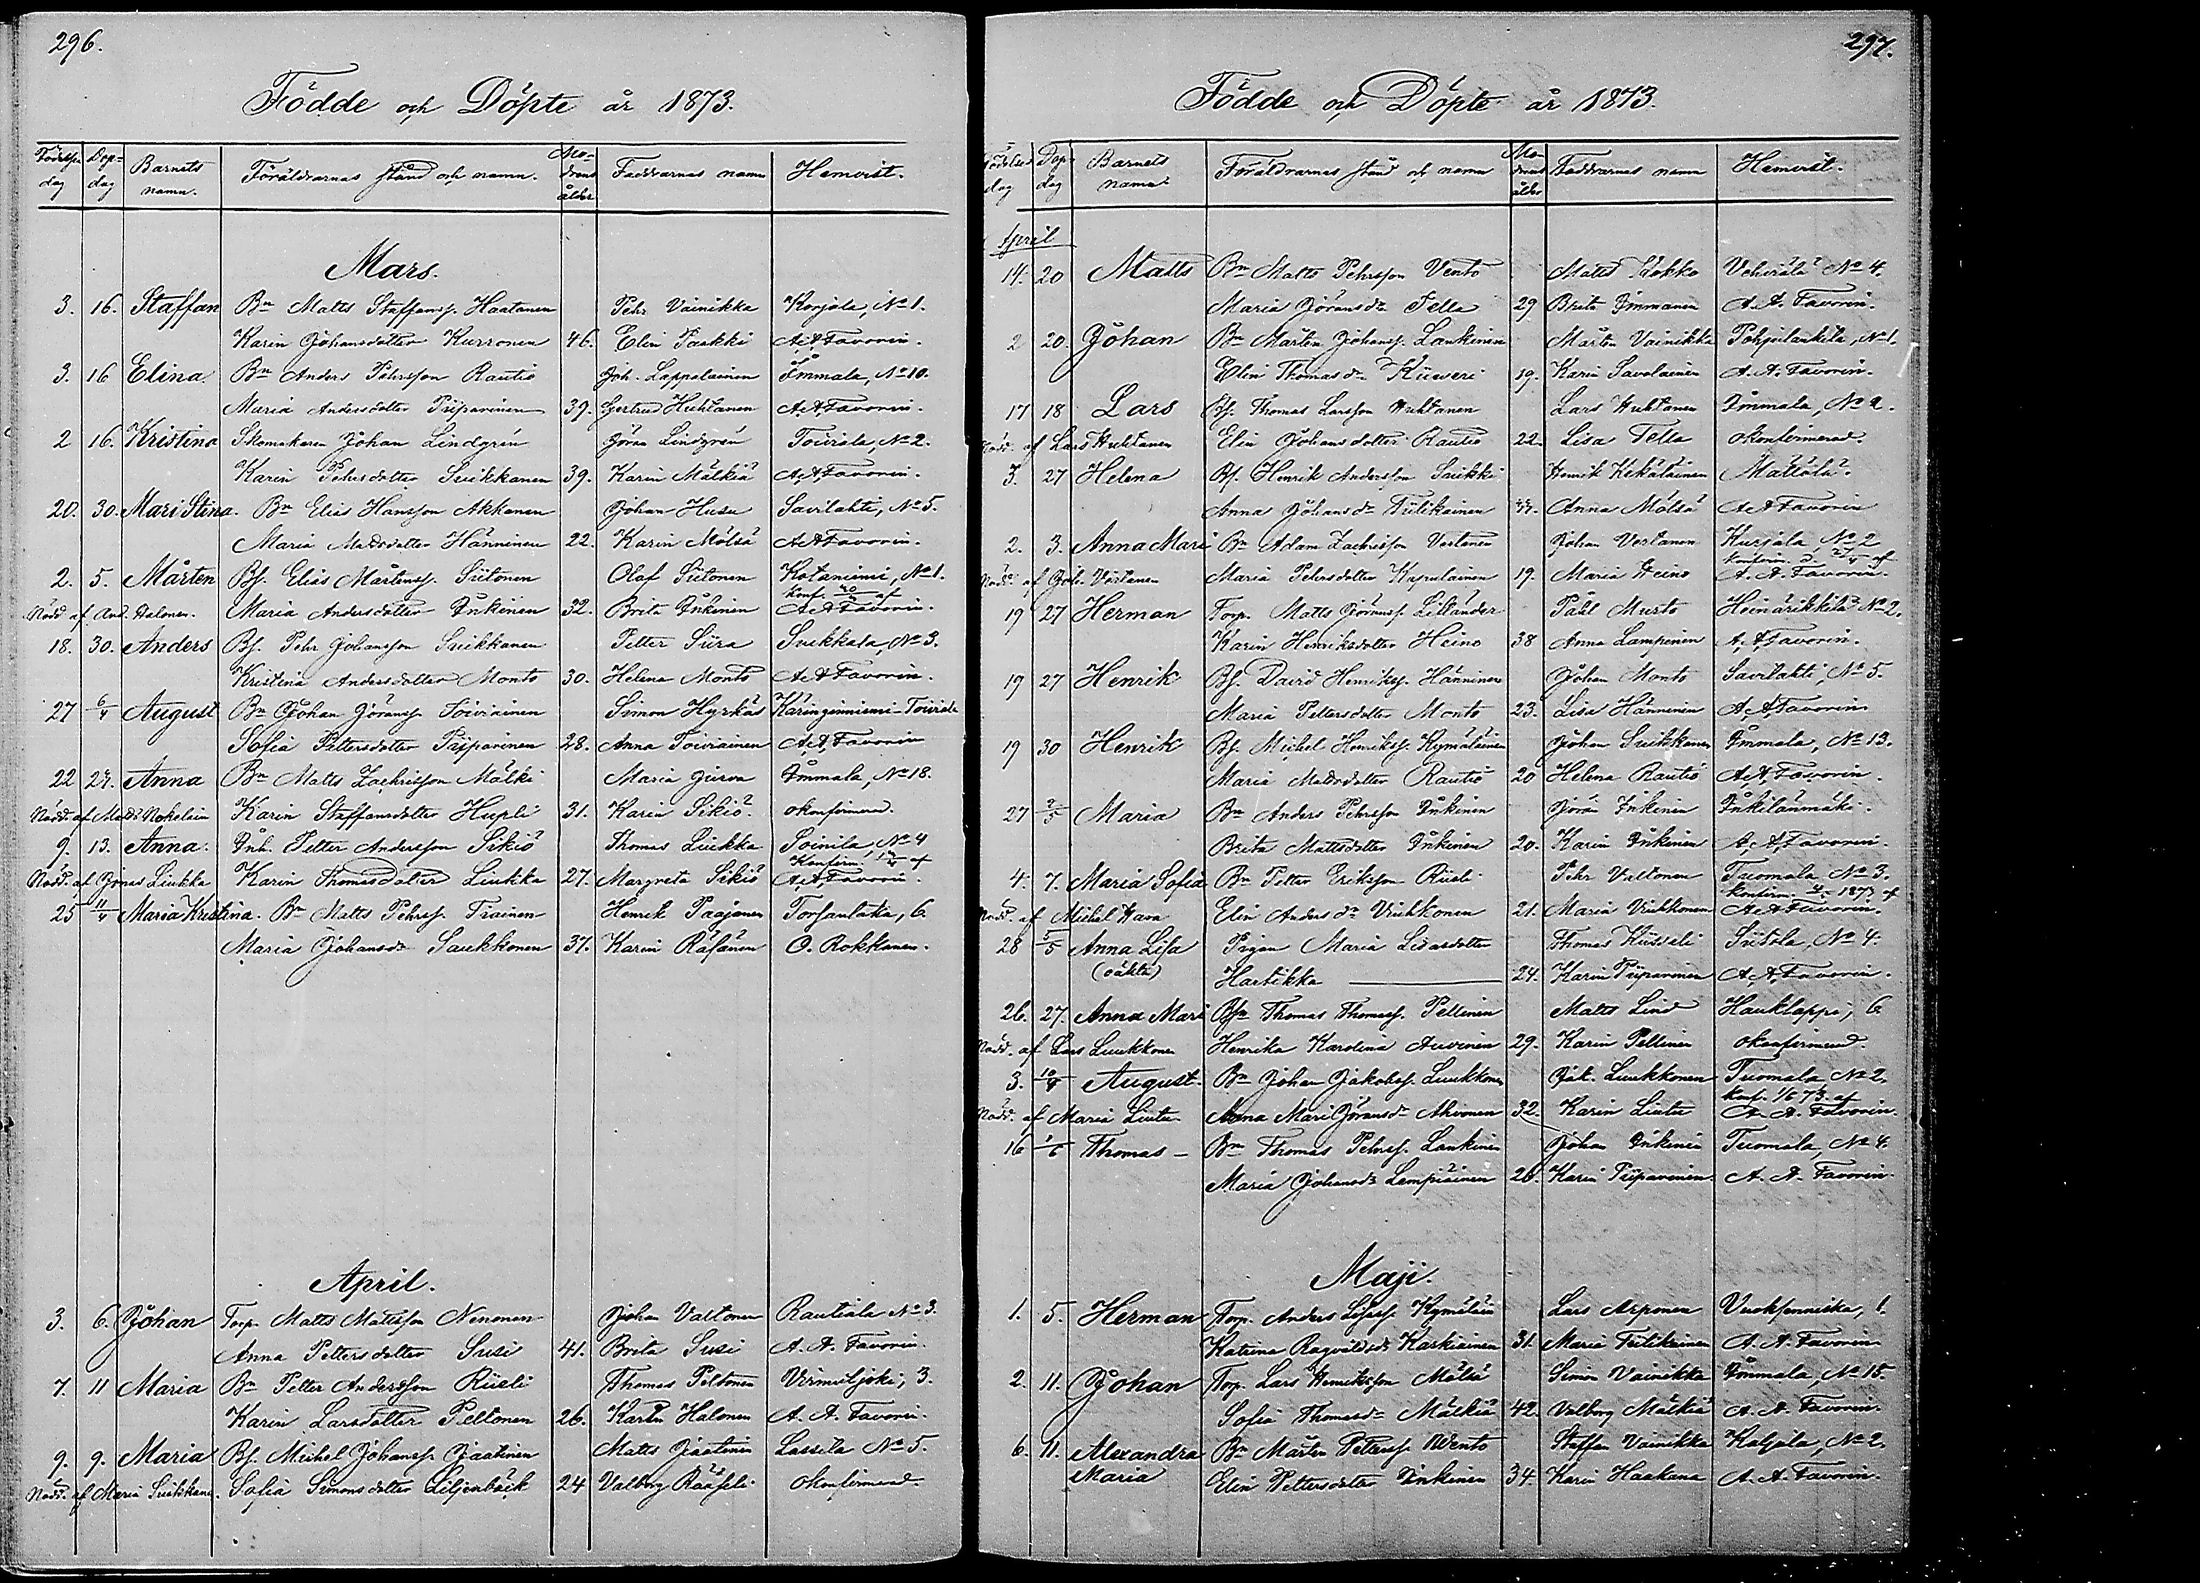 296.
Födde och Döpte år 1873.
Födelse dag | Dop- dag | Barnets namn. | Föräldrarnas stånd och namn. | Mo- drens ålder | Faddrarnas namn | Hemvist.
Mars.
3. 16. Staffan Bn Matts Staffanss. Haatanen Pehr Vainikka Korjola, No 1.
Karin Johansdotter Kurronen 46. Elin Paakki A. A. Favorin.
3. 16 Elina. Bn Anders Pehrsson Rautio Joh. Lappalainen Immala, No 10.
Maria Andersdotter Piiparinen 39. Gertrud Huhtanen A. A. Favorin.
2 16. Kristina Skomakaren Johan Lindgrén Jöran Lindgrén Toiviala, No 2.
Karin Pehrsdotter Suikkanen 39. Karin Mälkiä A. A. Favorin.
20. 30. Mari Stina. Bn Elias Hansson Akkanen Johan Husu Savilahti, No 5.
Maria Mattsdotter Hänninen 22. Karin Mölsä A. A. Favorin.
2. 5. Mårten Bs. Elias Mårtenss. Siitonen Olof Siitonen Kotaniemi, No 1.
Nödd. af And. Halonen. Maria Andersdotter Inkinen 32. Brita Inkinen Konf. af A. A. Favorin.
18. 30. Anders Bs. Pehr Johansson Suikkanen Petter Siira Suikkala, No 3.
Kristina Andersdotter Monto 30. Helena Monto A. A. Favorin.
27 6/4 August Bn Johan Jöranss. Toiviainen Simon Hyrkäs Käringinniemi Toiviala
Sofia Pettersdotter Piiparinen 28. Anna Toiviainen A. A. Favorin
22 24. Anna Bn Matts Zachrisson Mälki Maria Jurva Immala, No 18.
Nödd. af Matts Nokelain Karin Staffansdotter Hupli 31. Karin Sikiö. okonfirmerad.
9. 13. Anna. Inh. Petter Andersson Sikiö Thomas Liukka Soinila, No 4
Nödd. af Jonas Liukka Karin Thomasdotter Liukka 27. Margreta Sikiö Konfirm. af A. A. Favorin.
25 11/4 Maria Kristina. Bn Matts Pehrss. Trainen Henrik Paajanen Torsanlaka, 6.
Maria Johansdr Saukkonen 37. Karin Räsänen O. Rokkanen.
April.
3. 6. Johan Torp. Matts Mattsson Nenonen Johan Valtonen Rautiala No 3.
Anna Pettersdotter Susi 41. Brita Susi A. A. Favorin.
7. 11 Maria Bn Petter Andersson Rüeli Thomas Peltonen Virmutjoki, 3.
Karin Larsdotter Peltonen 26. Karin Halonen A. A. Favorin.
9. 9. Maria Bs. Michel Johanss. Jaatinen Matts Jaatinen Lassila No 5.
Nödd. af Maria Suikkane. Sofia Simonsdotter Liljenbäck 24 Valborg Rääseli okonfirmerad.
297.
Födde och Döpte år 1873.
Födelse dag | Dop- dag | Barnets namn. | Föräldrarnas stånd och namn | Mo- drens ålder | Faddrarnas namn | Hemvist.
April
14. 20 Matts Bn Matts Pehrsson Vento Matts Kokko No 4.
Maria Jöransdr Tella 29 Brita Immonen A. A. Favorin.
2 20. Johan Bn Mårten Johanss. Lankinen Mårten Vainikka Pohjalankila, No 1.
Elin Thomasdr 19. Karin Savolainen A. A. Favorin.
17 18 Lars Bs. Thomas Larsson Huhtanen Lars Huhtanen Immala, No 2.
Nödd. af Lars Huhtanen Elin Johansdotter Rautio 22. Lisa Tella okonfirmerad.
3. 27 Helena Bs. Henrik Andersson Saukki Henrik Kekäläinen Mattila.
Anna Johansdr Tiilikainen Anna Mölsä A. A. Favorin
2. 3. Anna Mari Bn Adam Zachrisson Vertanen Johan Vertanen Kurjala No 2
Nödd. af Joh. Vertanen Maria Pehrsdotter Kapulainen 19. Maria Heino Konfirm. d. af A. A. Favorin.
19 27 Herman Torp. Matts Jöranss. Liitänder Påhl Musto Heinärikkilä No 2.
Karin Henriksdotter Heino 38 Anna Lampinen A. A. Favorin.
19 27 Henrik Bs. David Henrikss. Hänninen Johan Monto Savilahti, No 5.
Maria Pettersdotter Monto 23. Lisa Hänninen A. A. Favorin
19 30 Henrik Bs. Michel Henrikss. Kymäläinen Johan Suikkanen Immala, No 13.
Maria Mattsdotter Rautio 20 Helena Rautio A. A. Favorin.
27 2/5 Maria Bn Anders Pehrsson Inkinen Jöran Inkinen Inkilänmäki.
Brita Mattsdotter Inkinen 20. Karin Inkinen A. A. Favorin.
4. 7. Maria Sofia Bn Petter Eriksson Rüeli Pehr Valtonen Tuomala No 3.
Nödd. af Michel Hara Elin Andersdr Viuhkonen 21. Maria Viuhkonen konfirm. 1873 af A. A. Favorin.
28 5/5 Anna Lisa Pigan Maria Larsdotter Thomas Küsseli Siitola, No 4.
(oäkta) Hartikka 24. Karin Piiparinen A. A. Favorin.
26. 27. Anna Mari Bn Thomas Thomass. Pellinen Matts Lind Hauklappi, 6
Nödd. af Lars Luukkonen Henrika Karolina Auvinen 29. Karin Pellinen okonfirmerad.
3. 10/4 August. Bn Johan Jakobss. Luukkonen Jak. Luukkonen Tuomala No 2.
Nödd. af Maria Liuta Anna Mari Jöransdr Ahvonen 32. Karin Liuta Konf. 1/6 73 af A. A. Favorin.
16 1/6 Thomas Bn Thomas Pehrss. Lankinen Johan Inkinen Tuomala, No 4.
Maria Johansdr Lempiäinen 26. Karin Piiparinen. A. A. Favorin.
Maji.
1. 5. Herman Torp. Anders Kymäläin Lars Arponen Vuoksenniska, 1.
Katrina Ragvaldsdr Karkiainen 31. Maria Tiilikainen A. A. Favorin
2. 11. Johan Torp. Lars Henriksson Mölsä Simon Vainikka Immala, No 15.
Sofia Thomasdr Mälkiä 42. Valborg Mälkiä A. A. Favorin.
6. 11. Alexandra Bn Mårten Petterss. Wento Staffan Vainikka Kaljala, No 2.
Maria Elin Pettersdotter Inkinen 34. Karin Haakana A. A. Favorin.